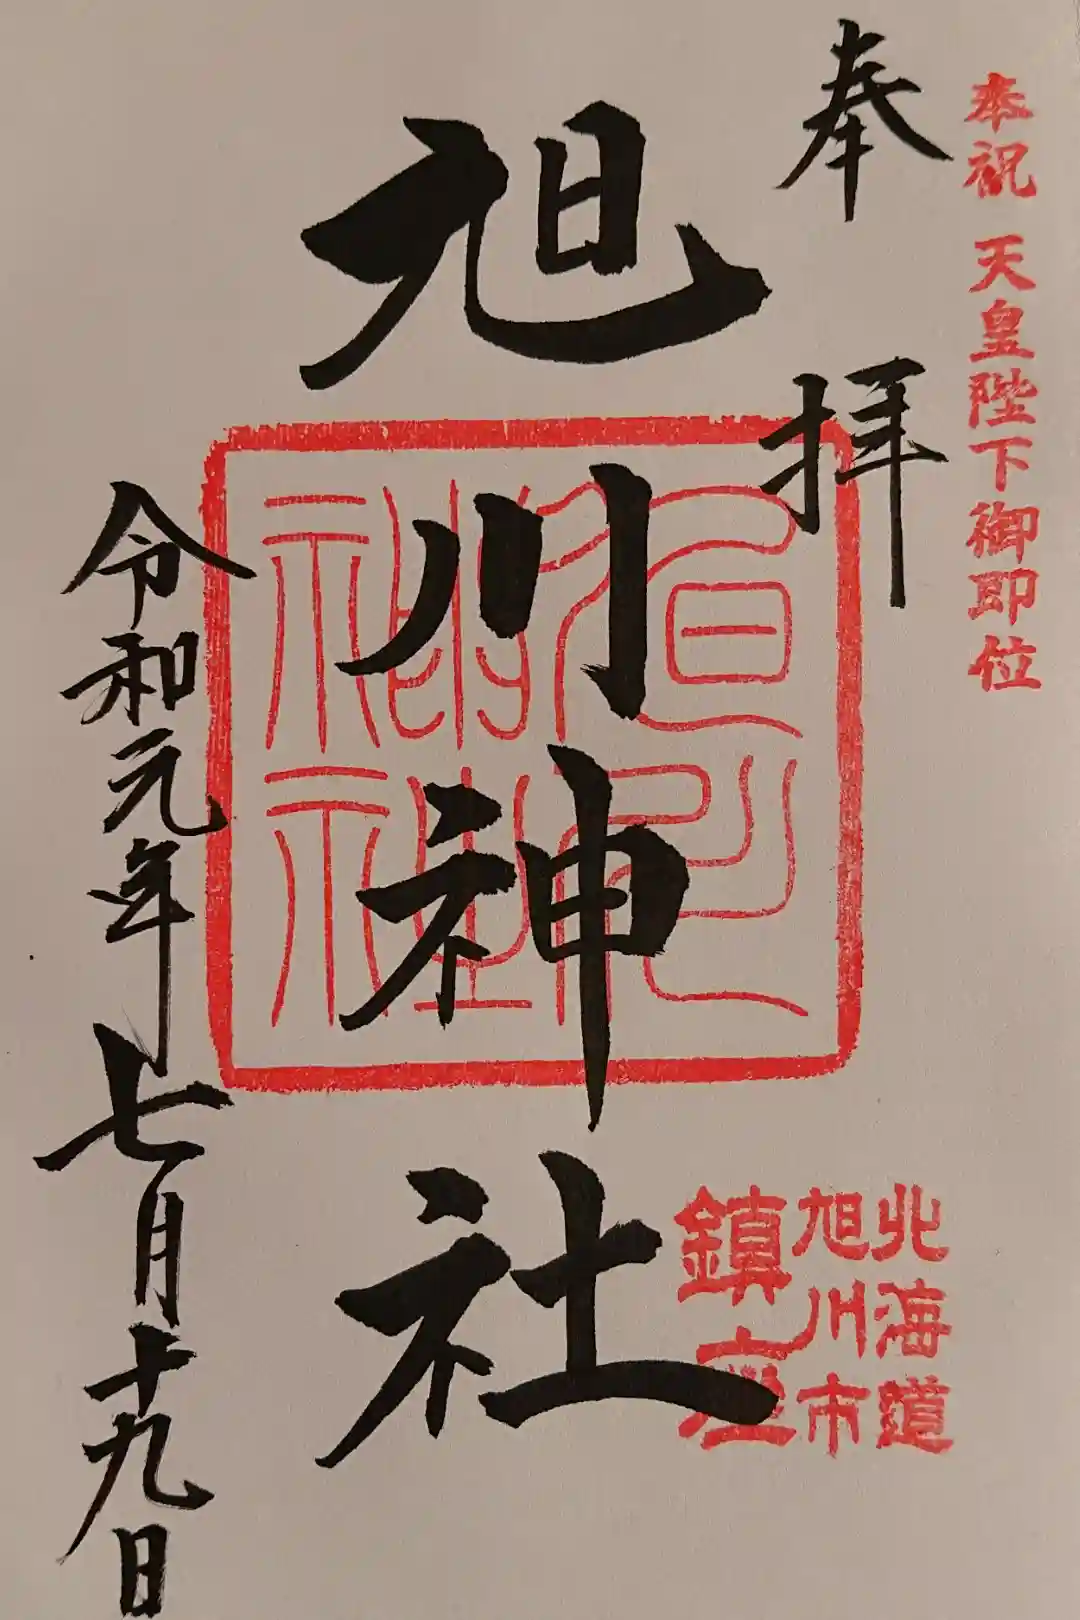 奉祝 天皇陛下御即位
奉拝
北海道
旭川市
鎮座
旭川神社
旭川神社
令和元年七月十九日